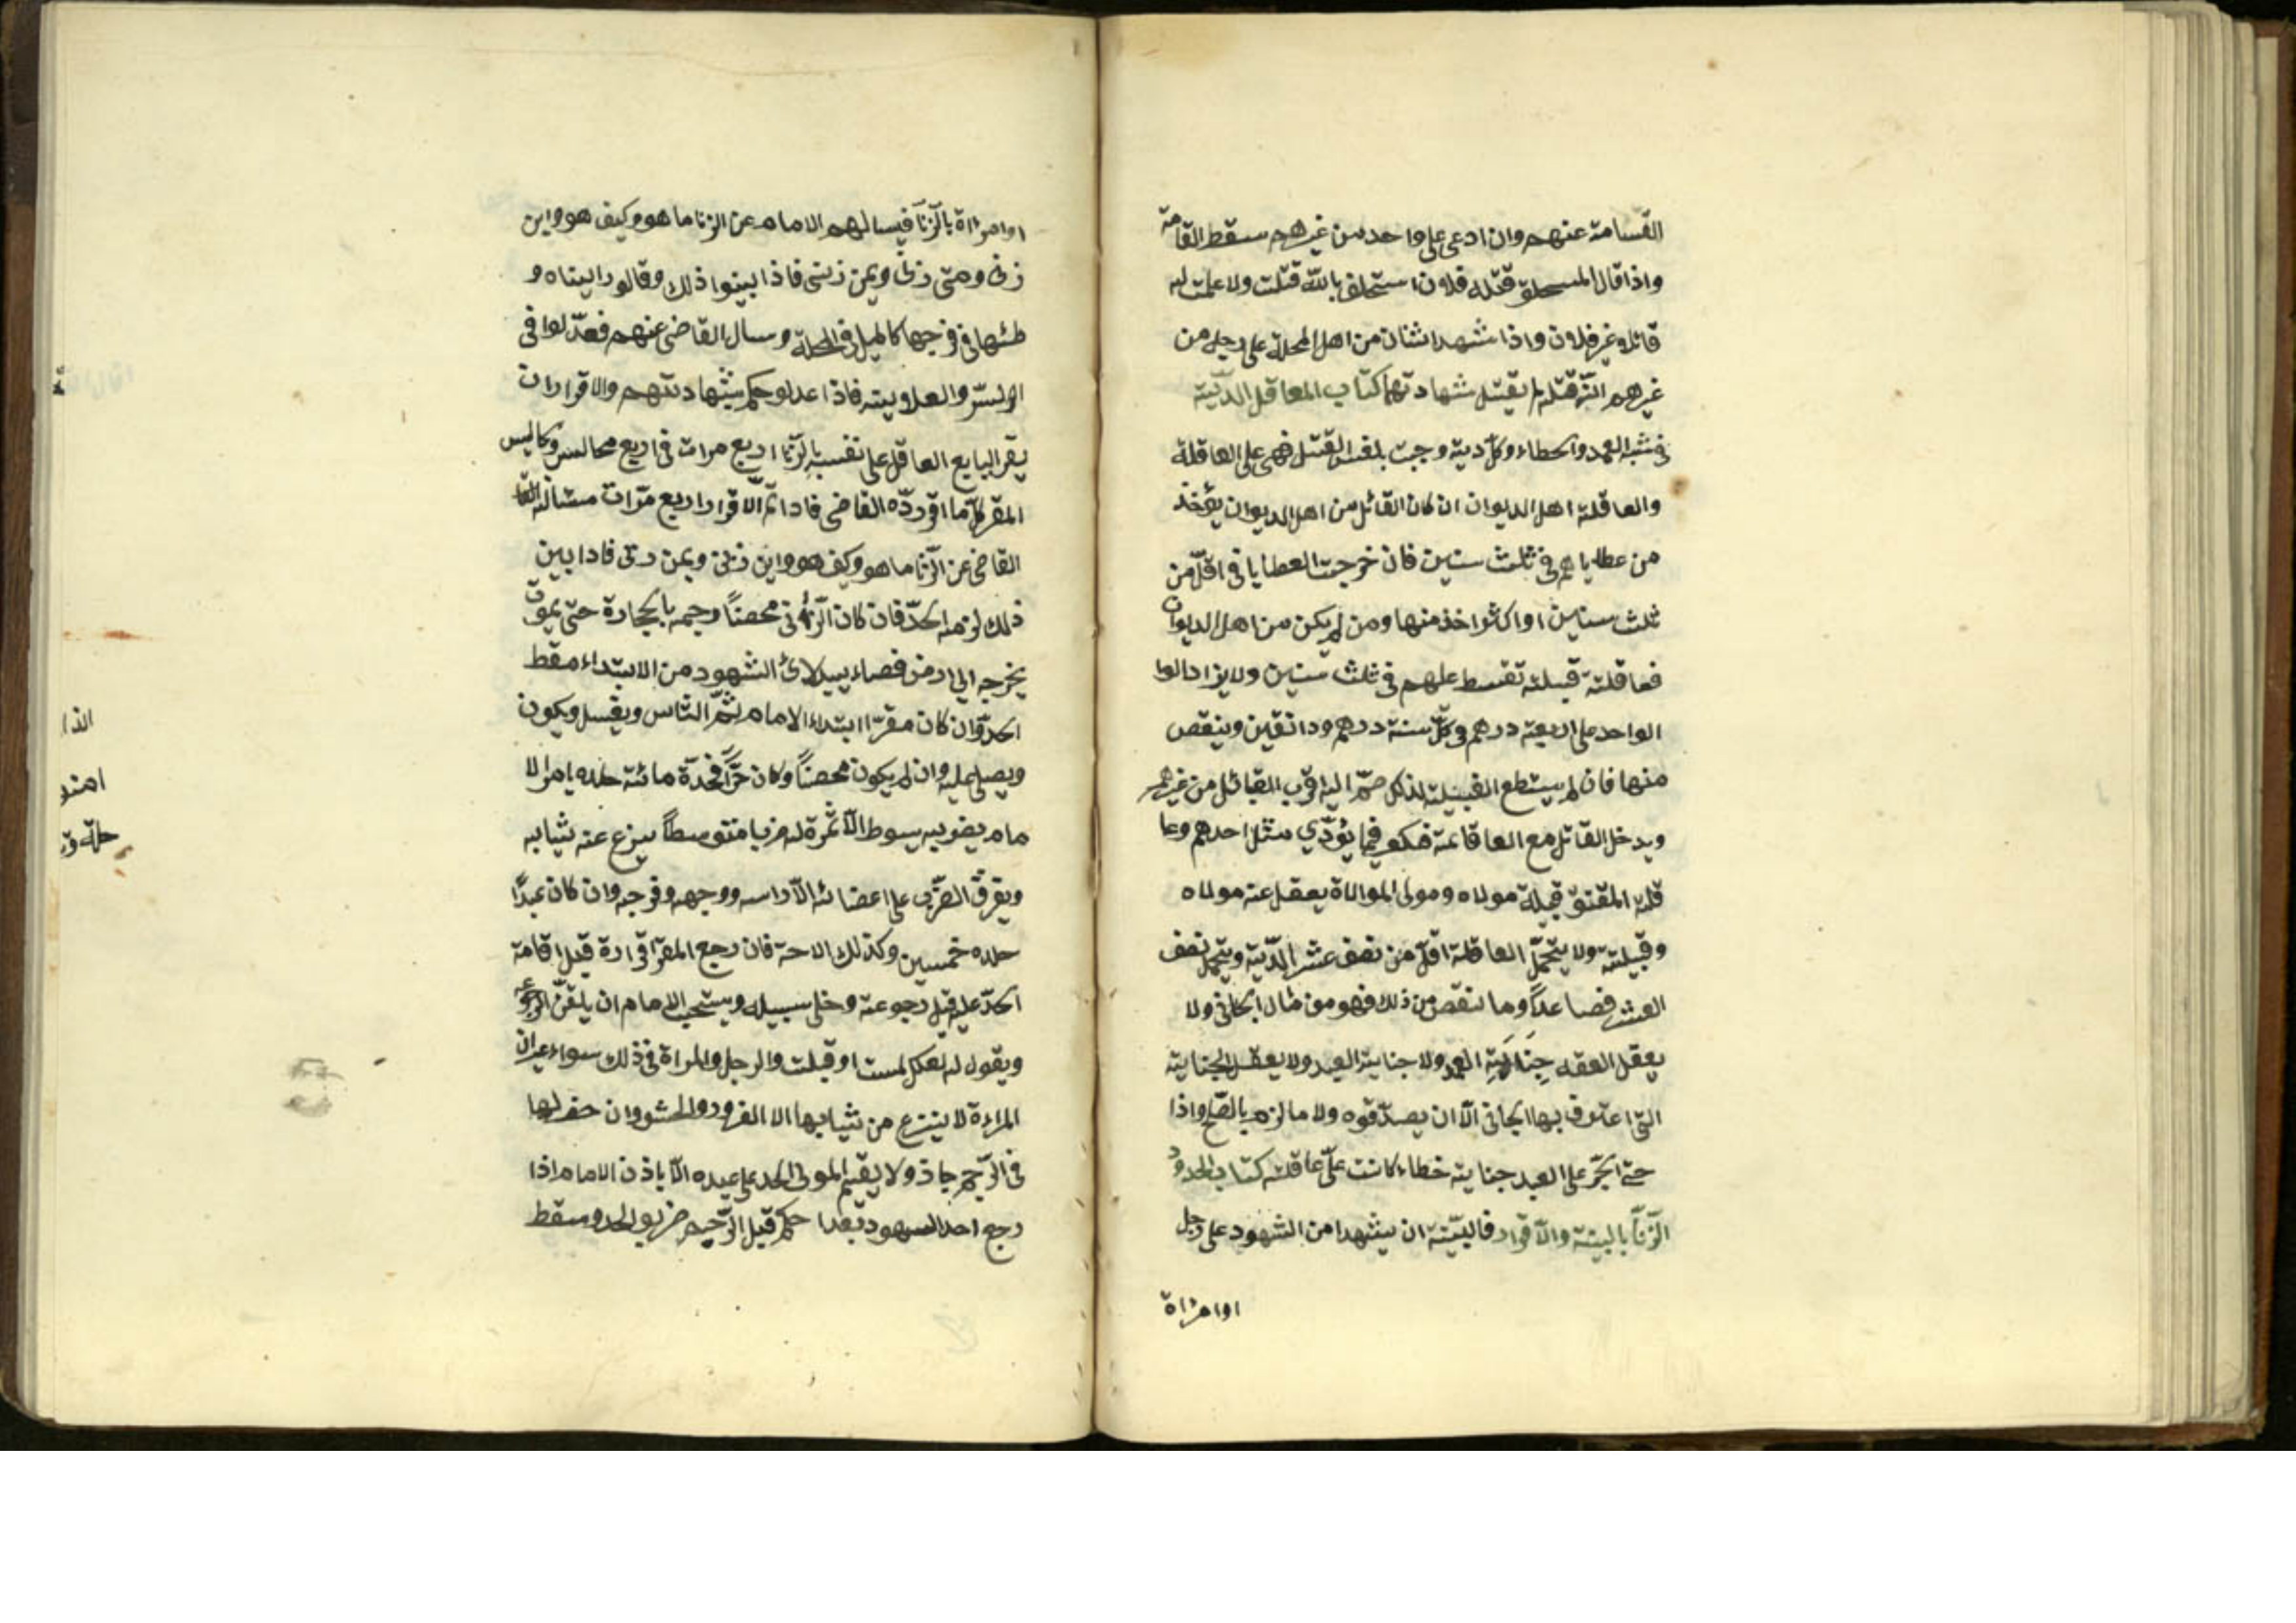 القسامة عنهم وان ادعى على واحد من غيرهم سقط القامة
واذا قال المستحلف قتله فلان استحلف بالله قتلت ولا علمت له
قاتلا غير فلان واذا شهد اثنان من اهل المحلة على رجل من
غيرهم انه قتله لم يقتبل شهادتهما كتاب المعاقل الدية
فى شبه العمد والخطاء وكل دية وجبت بنفس القتل فهى على العاقلة
والعاقلة اهل الديوان ان كان القاتل من اهل الديوان يؤخذ
من عطاياهم فى ثلث سنين فان خرجت العطايا فى اقل من
ثلث سنين او اكثر اخذ منها ومن لم يكن من اهل الديوان
فعاقلته قبيلته تقسط عليهم فى ثلث سنين ولا يزاد الوا
الواحد على اربعة درهم فى كل سنة درهم ودانقين وينقص
منها فان لم يستطع القبيلة لذلك ضم اليه اقرب القبائل من غيرهم
ويدخل القاتل مع العاقلة فيكو فيما يؤدي مثل احدهم وعا
قلة المعتق قبيلة مولاه ومولى الموالاة يعقل عنه مولاه
وقبيلته ولا يتحمل العاقلة اقل من نصف عشر الدية ويتحمل نصف
العشر فصاعداً وما نقص من ذلك فهو من مال الجانى ولا
يعقل العقه جناية العبد ولا جناية العبد ولا يعقل الجناية
التى اعترف بها الجانى الا ان يصدقوه ولا ما لزم بالصلح واذا
حتى الحر على العبد جناية خطاء كانت على عاقلته كتاب الحدود
الزنا بالبينة والاقرار فالبينة ان يشهدا من الشهود على رجل
او امراة
او امراة بالزنا فيسالهم الامام عن الزنا ما هو وكيف هو واين
زنى ومتى زنى وبمن زنى فاذا بينوا ذلك وقالو رايناه و
طئها فى فرجها كالميل فى المحلة وسال القاضى عنهم فعدلوا فى
السر والعلانية فاذا عدلو حكم بشهادتهم والاقرار ان
يقر البايع العاقل على نفسه بالزنا اربع مرات فى اربع مجالس وكاليس
المقر كلما اقر رده القاضى فاذا تم الاقرار اربع مرات مساله القا
القاضى عن الزنا ما هو وكيف هو واين زنى وبمن زنى فاذا بين
ذلك لزمه الحد فان كان الزانى محصناً رجمه بالحجارة حتى يموت
يخرجه الى ارض فضاء يبدلائ الشهود من الابتداء سقط
الحد وان كان مقرا ابتداء الامام ثم الناس ويغسل ويكون
ويصلى عليه وان لم يكون محصناً وكان حراً فحدة مائة جلده امر الا
مام يضربه بسوط لا ثمرة له ضربا متوسطاً ينزع عنه ثيابه
ويفرق الضرب على اعضائه الا راسه ووجهه وفرجه وان كان عبداً
جلده خمسين وكذلك الامة فان رجع المقر اقراره قبل اقامة
الحد عليه قبل رجوعه وخلى سبيله ويستحب للامام ان يلقن الرجوع
ويقول له لعلك لمست او قبلت والرجل والمراة فى ذلك سواء غير ان
المراءة لا ينزع من ثيابها الا الفرو والحشو وان حفر لها
فى الرجم جاذ ولا يقيم المولى الحد على عبده الا باذن الامام اذا
رجع احد الشهود بعدا حكم قبل الرجم ضربو الحد وسقط